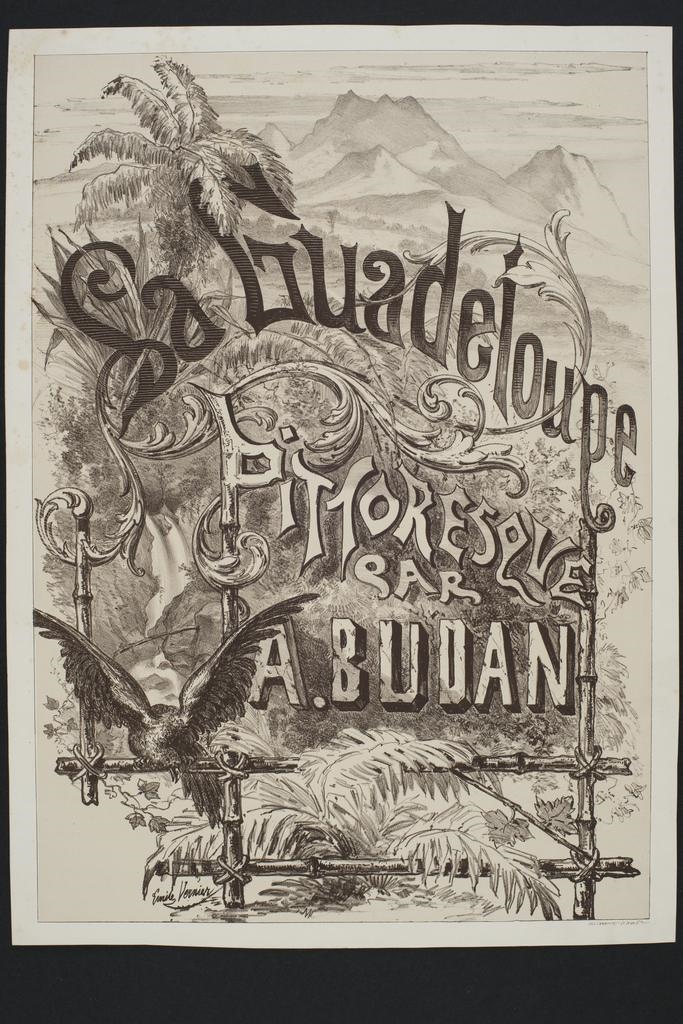 La Guadeloupe
PITTORESQUE
PAR
A. BUDAN
Emile Vernier